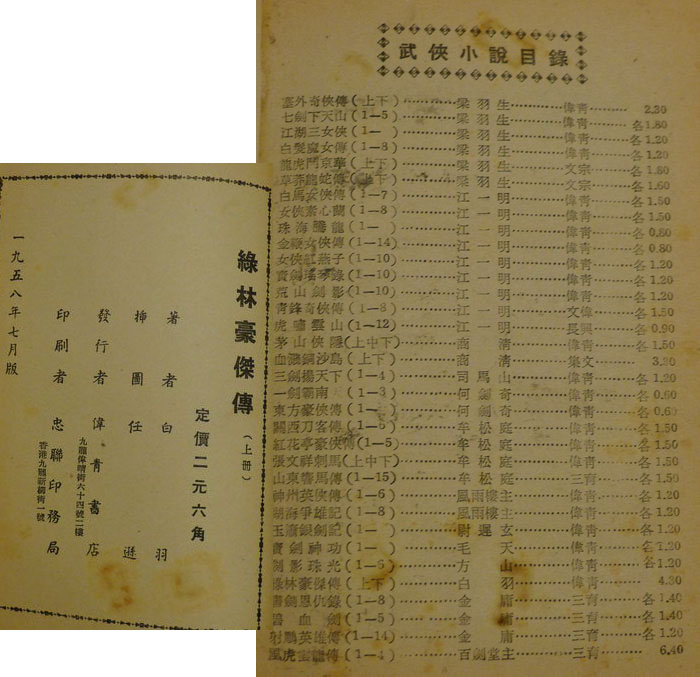 武俠小說目錄
塞外奇俠傳(上下)………梁羽生………偉青………
七劍下天山(1—5)………梁羽生………偉青………各1.80
江湖三女俠(1— )………梁羽生………偉青………各1.20
白髮魔女傳(1—8)………梁羽生………偉青………各1.20
龍虎鬥京華(上下)………梁羽生………文宗………各1.80
草莽龍蛇傳(上下)………梁羽生………文宗………各1.60
白馬女俠傳(1—7)………江一明………偉青………各1.50
女俠素心蘭(1—8)………江一明………偉青………各1.50
珠海騰龍(1— )………江一明………偉青………各0.80
金鏢女俠傳(1—14)………江一明………偉青………各0.80
女俠紅燕子(1—10)………江一明………偉青………各1.20
劍 錄(1—10)………江一明………偉青………各1.20
荒山劍影(1—10)………江一明………偉青………各1.20
青鋒奇俠傳(1—8)………江一明………文偉………各1.50
虎嘯雲山(1—12)………江一明………長興………各0.90
茅山俠隱(上中下)………商清………偉青………各1.50
血濺 沙島(上下)………商清………集文………
三劍揚天下(1—4)………司馬山………偉青………各1.20
一劍霸南天(1— )………何劍奇………偉青………各0.60
東方豪俠傳(1— )………何劍奇………偉青………各0.60
關西刀客傳(1— )………牟松庭………偉青………各1.50
紅花亭豪俠傳(1—5)………牟松庭………偉青………各1.50
張文祥刺馬(上中下)………牟松庭………偉青………各1.50
山東響馬傳(1—15)………牟松庭………三育………各1.30
神州英俠傳(1—6)………風雨樓主………偉青………各1.20
湖海爭雄記(1—8)………風雨樓主………偉青………各1.20
玉簫銀劍記(1— )………尉遲玄………偉青………各1.20
寶劍神功(1— )………毛天………偉青………各1.20
劍影珠光(1—5)………方山………偉青………各1.20
綠林豪傑傳(上下)………白羽………偉青………
書劍恩仇錄(1—8)………金庸………三育………各1.40
碧血劍(1—5)………金庸………三育………各1.40
射鵰英雄傳(1—14)………金庸………三育………各1.20
風虎雲龍傳(1—4)………百劍堂主………三育………6.40
綠林豪傑傳(上册)
定價二元六角
著者白羽
挿圖任遜
發行者偉青書店
九龍偉晴街六十四號二樓
印刷者忠聯印務局
香港九龍新柳街一號
一九五八年七月版